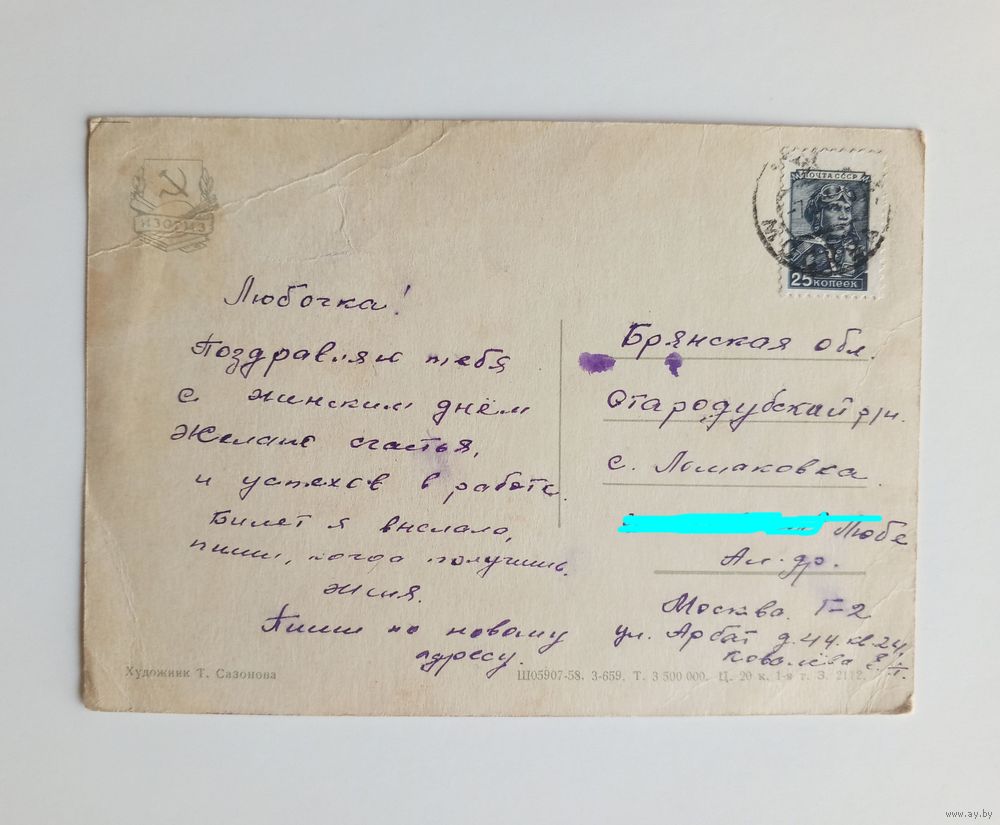 ИЗОГИЗ
ПОЧТА СССР
25 КОПЕЕК
Любочка!
Поздравляю тебя
с женским днём
Желаю счастья,
и успехов в работе.
Билет я выслала,
пиши, когда получишь.
Женя.
Пиши по новому
адресу.
Брянская обл.
Стародубский р/н.
с. Ломаковка
Любе
Ал-др.
Москва. Г-2
ул. Арбат д. 44. кв. 24,
Ковалёва
Художник Т. Сазонова
Ш05907-58. 3-659. Т. 3 500 000. Ц. 20 к. 1-я т. З. 2112.
www.ay.by